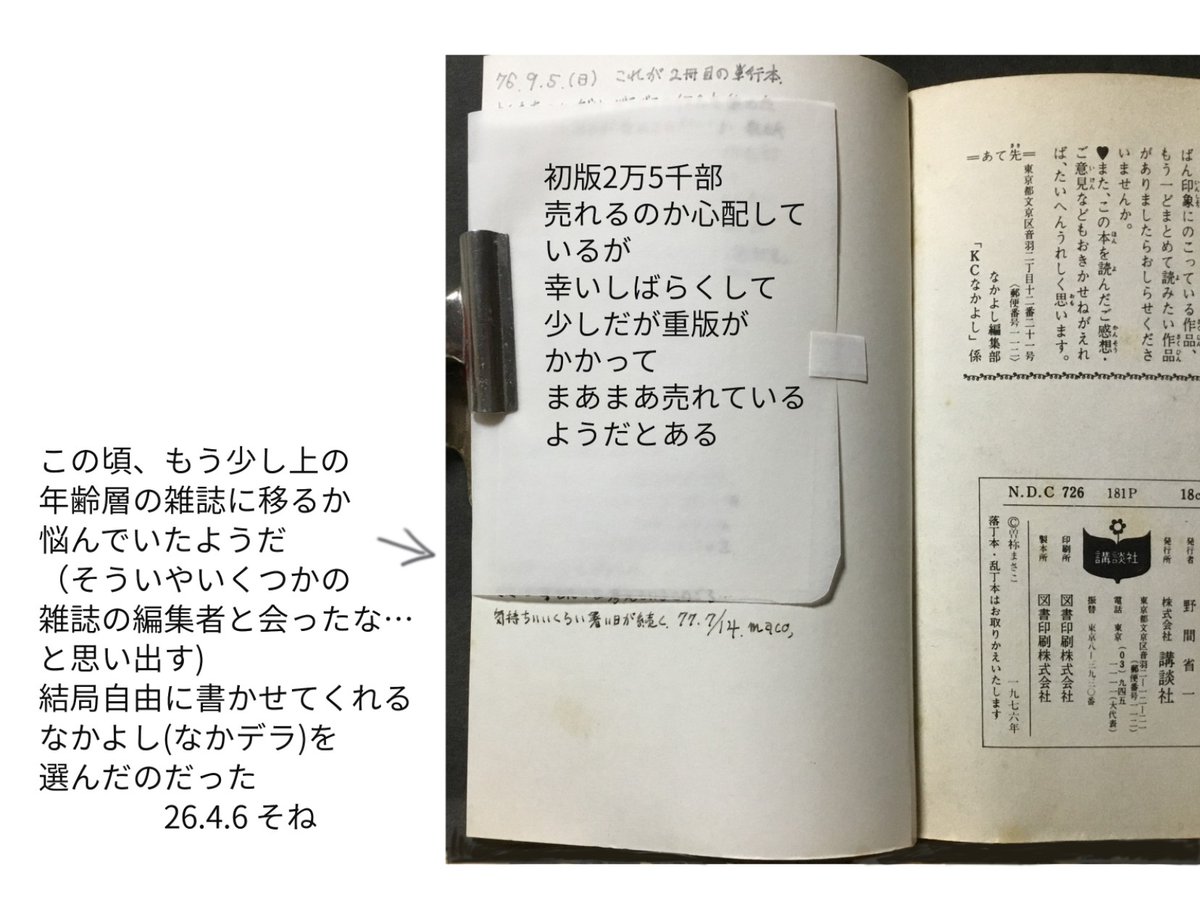 76.9.5.(日) これが2冊目の単行本.
初版2万5千部
売れるのか心配して
いるが
幸いしばらくして
少しだが重版が
かかって
まあまあ売れている
ようだとある
気持ちいいくらい暑い日が続く. 77.7/14. maco,
この頃、もう少し上の
年齢層の雑誌に移るか
悩んでいたようだ
(そういやいくつかの
雑誌の編集者と会ったな…
と思い出す)
結局自由に書かせてくれる
なかよし(なかデラ)を
選んだのだった
26.4.6 そね
ばん印象にのこっている作品、
もう一どまとめて読みたい作品
がありましたらおしらせくださ
いませんか。
♥また、この本を読んだご感想・
ご意見などもおきかせねがえれ
ば、たいへんうれしく思います。
=あて先=
東京都文京区音羽二丁目十二番二十一号
(郵便番号一一二)
なかよし編集部
「KCなかよし」係
N.D.C 726 181P 18c
発行者 野間省一
発行所 株式会社 講談社
東京都文京区音羽二-一二-二一
(郵便番号一一二)
電話 東京(03)九四五
一一一一(大代表)
振替 東京八-三九三〇番
講談社
印刷所 図書印刷株式会社
製本所 図書印刷株式会社
©曽祢まさこ 一九七六年
落丁本・乱丁本はお取りかえいたします